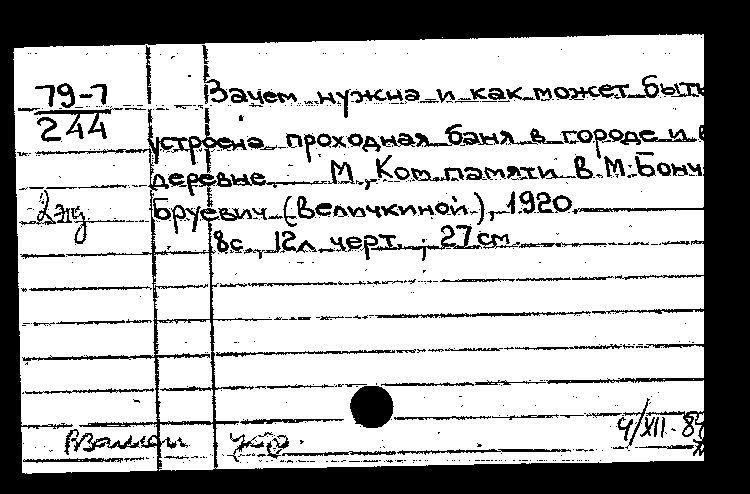 79-7
244
Зачем нужна и как может быть
устроена проходная баня в городе и в
деревне. М., Ком. памяти В.М. Бонч-
2 экз.
Бруевич (Величкиной), 1920.
8с., 12л. черт. ; 27см.
4/XII-84